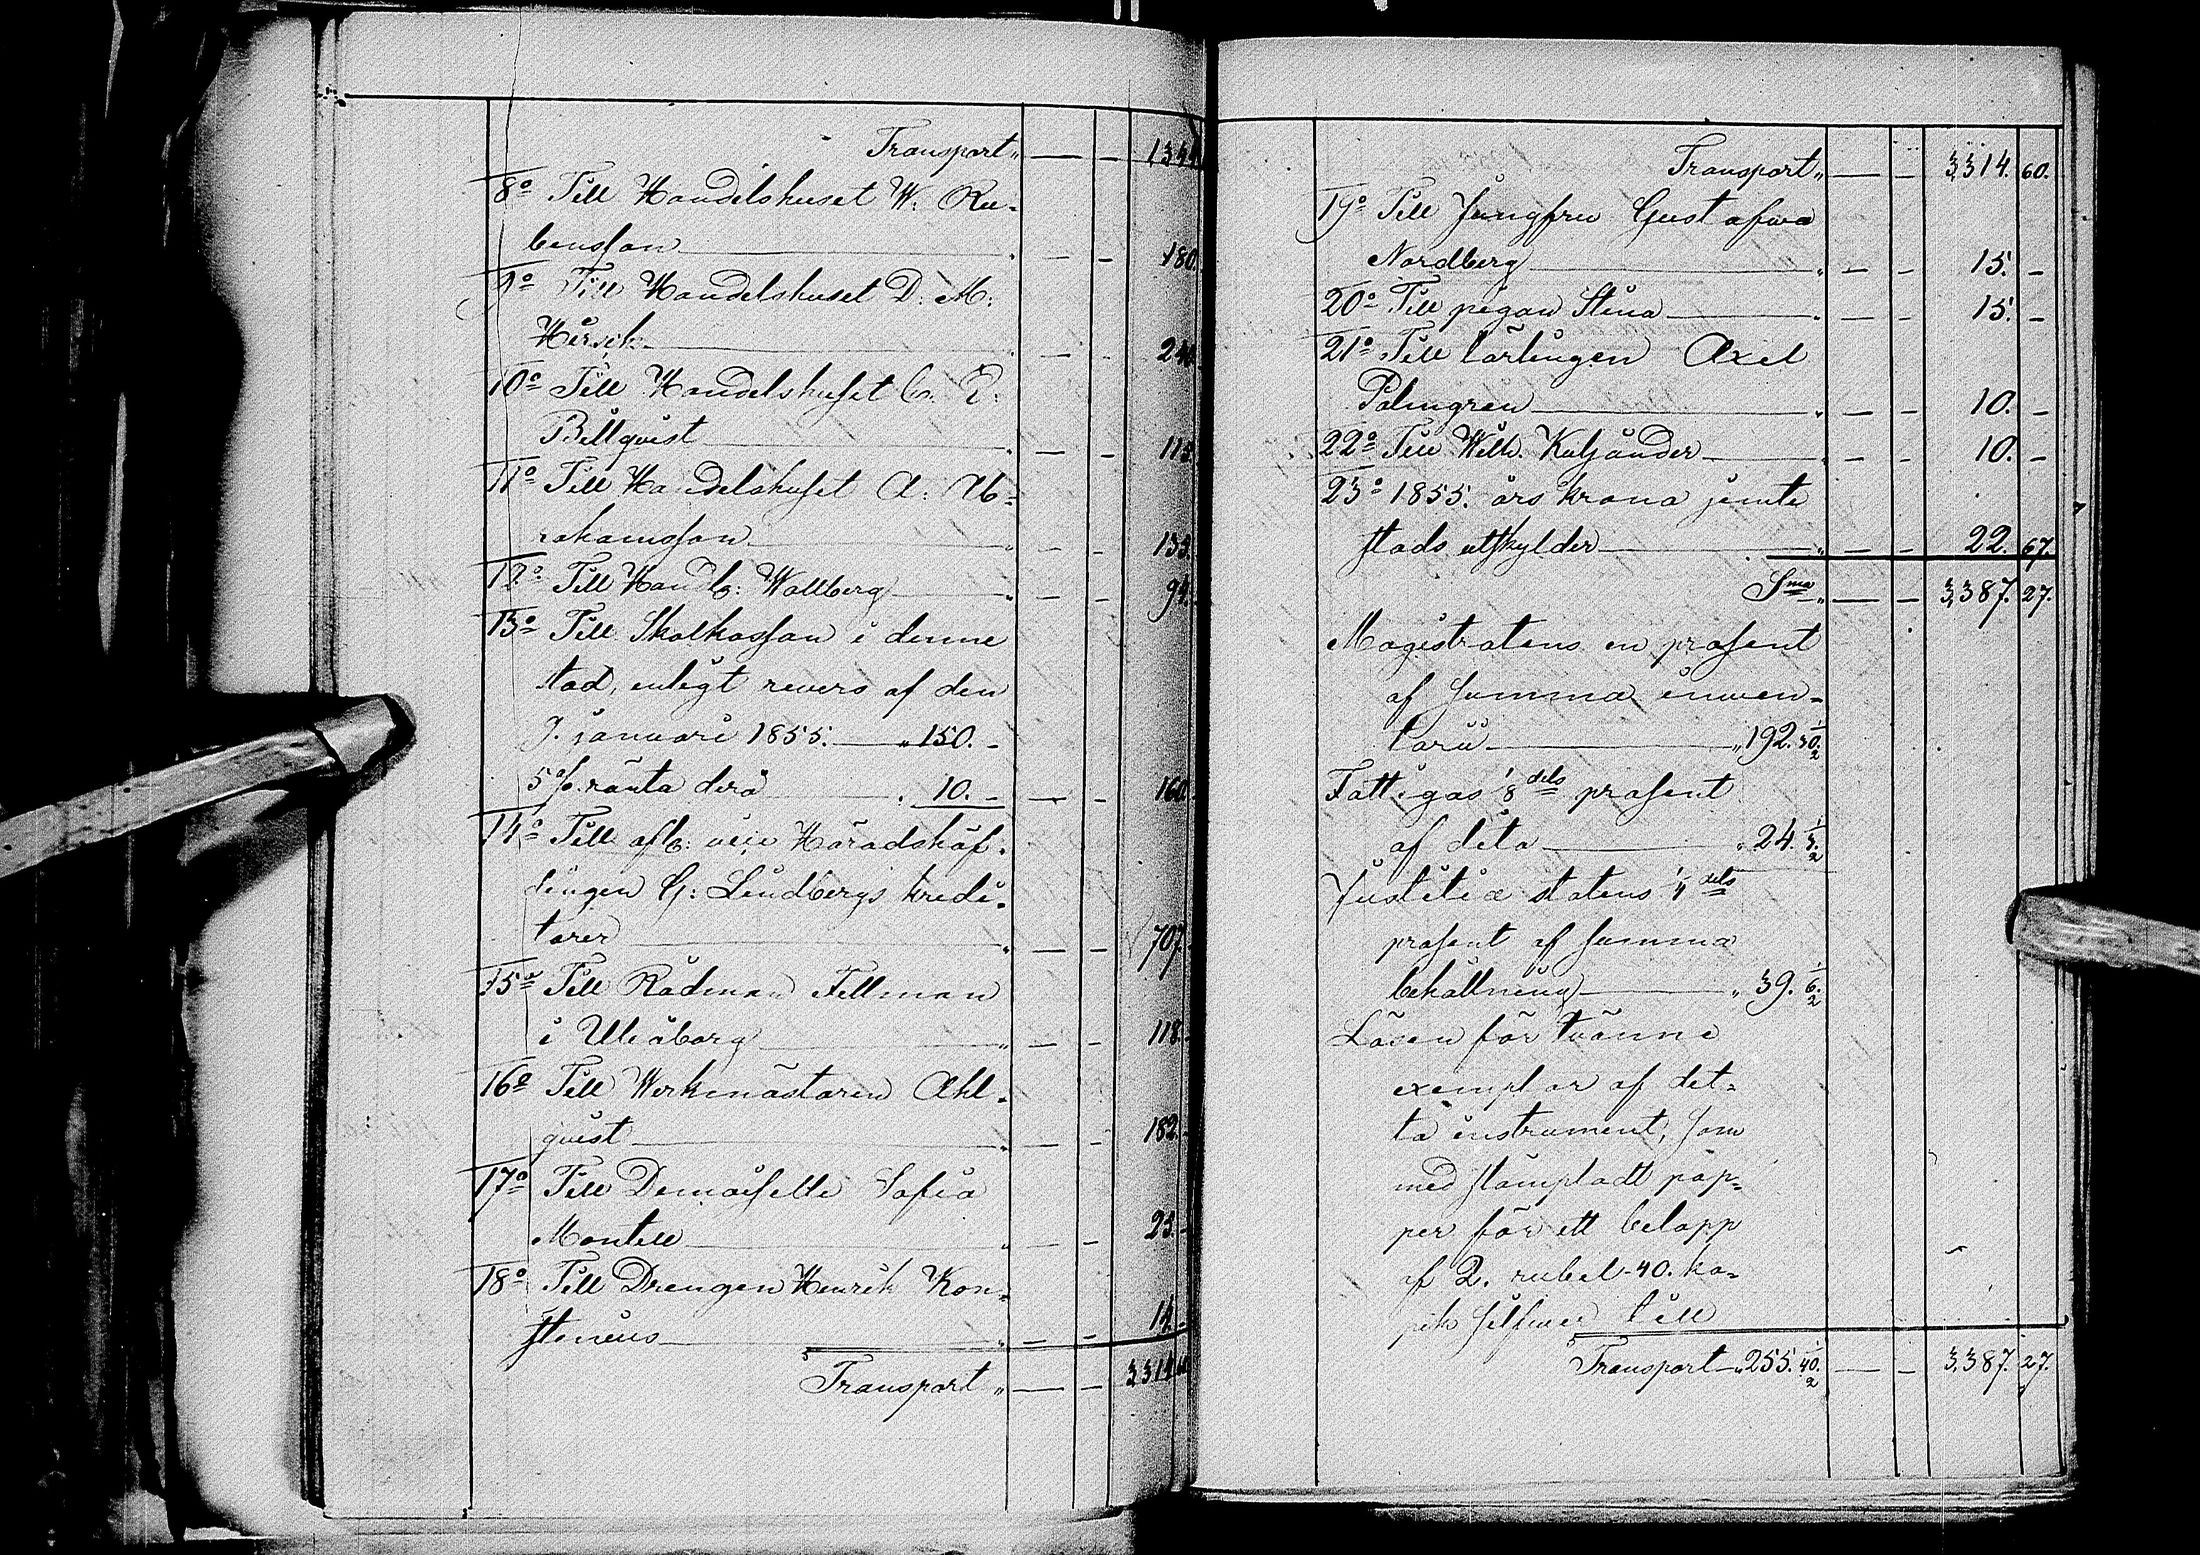 Transport „ — — 1344
8º Till Handelshuset W. Ru-
bensson — „ — — 180.
9º Till Handelshuset D. M.
Hirsch — „ — — 240
10º Till Handelshuset C. E.
Billquist — „ — — 115.
11º Till Handelshuset A. Ab-
rahamsson — „ — — 133.
12º Till Handl: Wallberg — „ — — 94.
13º Till Skolkassan i denne
stad, enligt revers af den
9. januari 1855. — „ 150. -
5 % ränta derå „ 10. - — — 160.
14º Till afl: vice Häradshöf-
dingen G: Lindbergs kredi-
torer — „ — — 707.
15º Till Rådman Fellman
i Uleåborg — „ — — 118. -
16º Till Werkmästaren Ahl-
quist — „ — — 182. -
17º Till Demoiselle Sofia
Montell — „ — — 23. -
18º Till Drengen Henrik Kon-
stenius — „ — — 14. -
Transport „ — — 3,314. 60
Transport „ — — 3,314. 60.
19º Till Jungfru Gustafva
Nordberg — „ — — 15. -
20º Till pigan Stina — „ — — 15. -
21º Till lärlingen Axel
Palmgren — „ — — 10. -
22º Till Wilh. Kuljander — „ — — 10. -
23º 1855. års krono jemte
stads utskylder — „ — — 22. 67.
Sma „ — — 3,387. 27.
Magistratens en prosent
af summa inven-
tarii — „ 192. 30 1/2
Fattigas 1/8 dels prosent
af dito — „ 24. 3 1/2
Justitiæ statens 1/4 dels
prosent af summa
behållning — „ 39. 6 1/2
Lösen för tvänne
exemplar af det-
ta instrument, som
med stämpladt pap-
per för ett belopp
af 2. rubel 40. ko-
pek silfver till
Transport „ 255. 40 1/2 — — 3,387. 27.